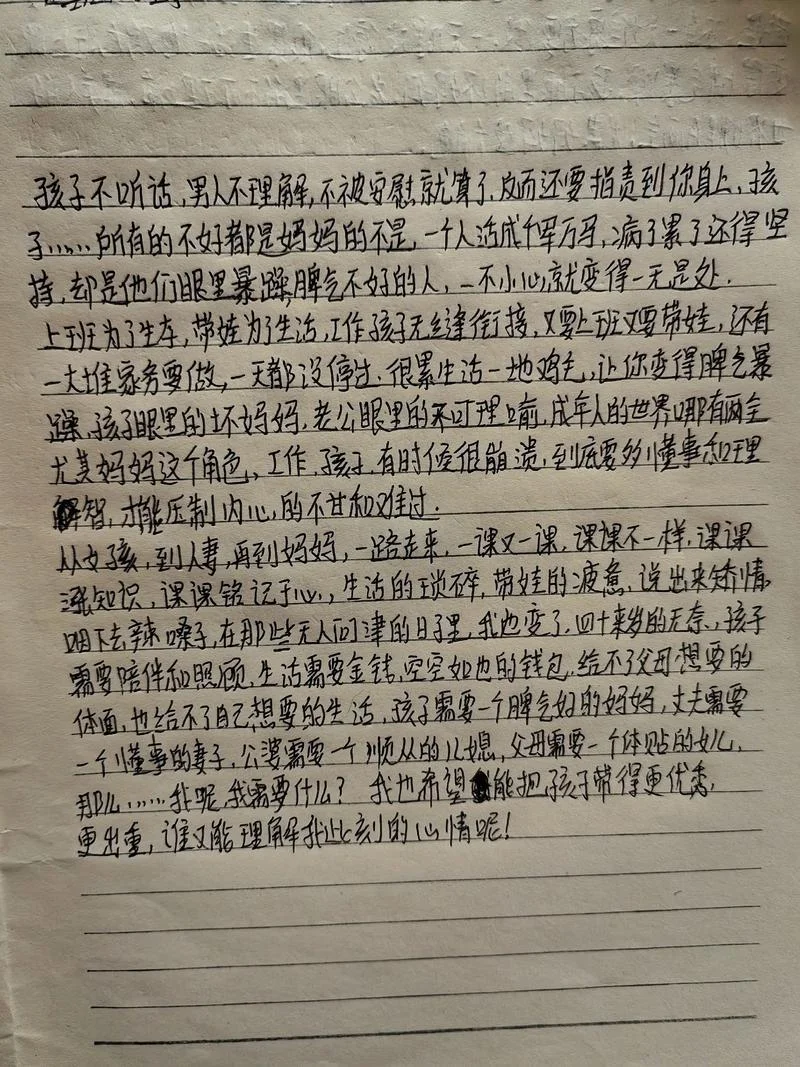 孩子不听话,男人不理解,不被安慰就算了,反而还要指责到你身上,孩
子……所有的不好都是妈妈的不是,一个人活成千军万马,病了累了还得坚
持,却是他们眼里暴躁脾气不好的人,一不小心就变得一无是处.
上班为了生存,带娃为了生活,工作孩子无缝衔接,又要上班又要带娃,还有
一大堆家务要做,一天都没停过.很累生活一地鸡毛,让你变得脾气暴
躁,孩子眼里的坏妈妈,老公眼里的不可理喻,成年人的世界哪有两全
尤其妈妈这个角色,工作,孩子,有时候很崩溃,到底要多懂事和理
智,才能压制内心,的不甘和难过.
从女孩,到人妻,再到妈妈,一路走来,一课又一课,课课不一样,课课
涨知识,课课铭记于心,生活的琐碎,带娃的疲惫,说出来矫情
咽下去辣嗓子,在那些无人问津的日子里,我也变了,四十来岁的无奈,孩子
需要陪伴和照顾,生活需要金钱,空空如也的钱包,给不了父母想要的
体面,也给不了自己想要的生活,孩子需要一个脾气好的妈妈,丈夫需要
一个懂事的妻子,公婆需要一个顺从的儿媳,父母需要一个体贴的女儿,
那么……我呢,我需要什么?我也希望能把孩子带得更优秀,
更出重,谁又能理解我此刻的心情呢!